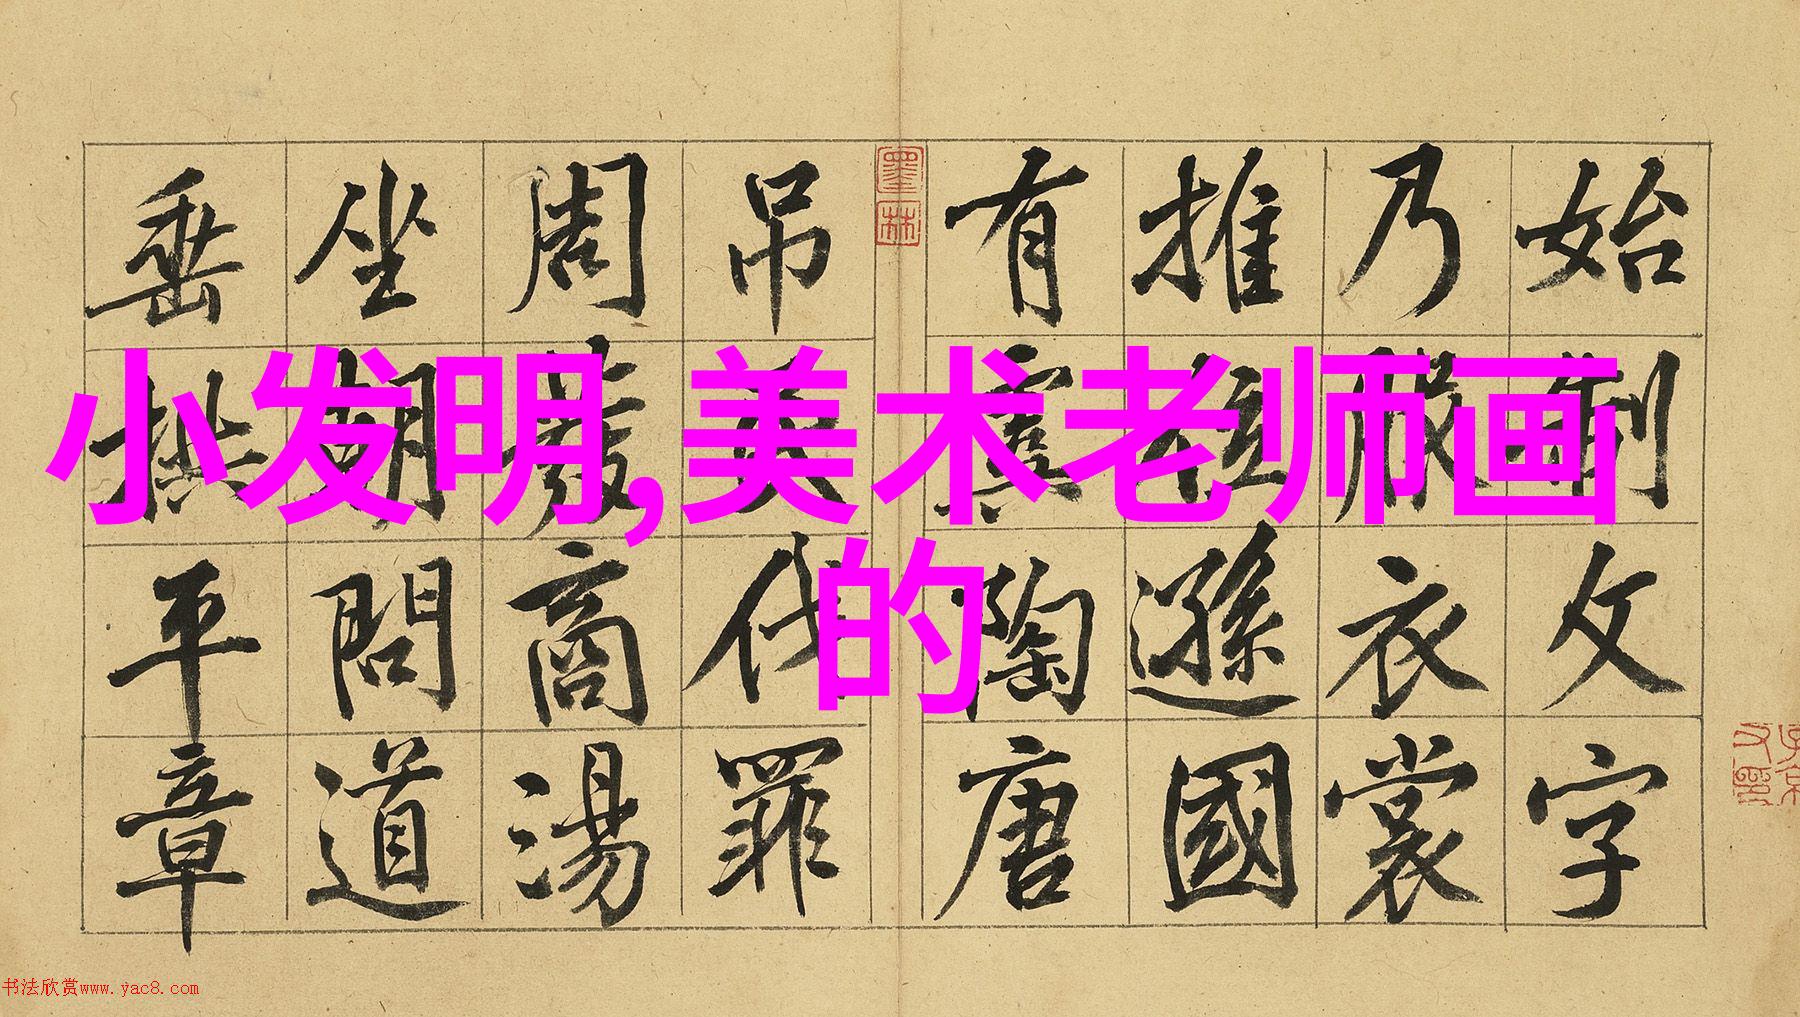 小发明,美术老师画
的
始制文字
乃服衣裳
推位遜國
有虞陶唐
墨林
吊伐罪
周發商湯
坐朝問道
垂拱平章
书法欣赏www.yac8.com